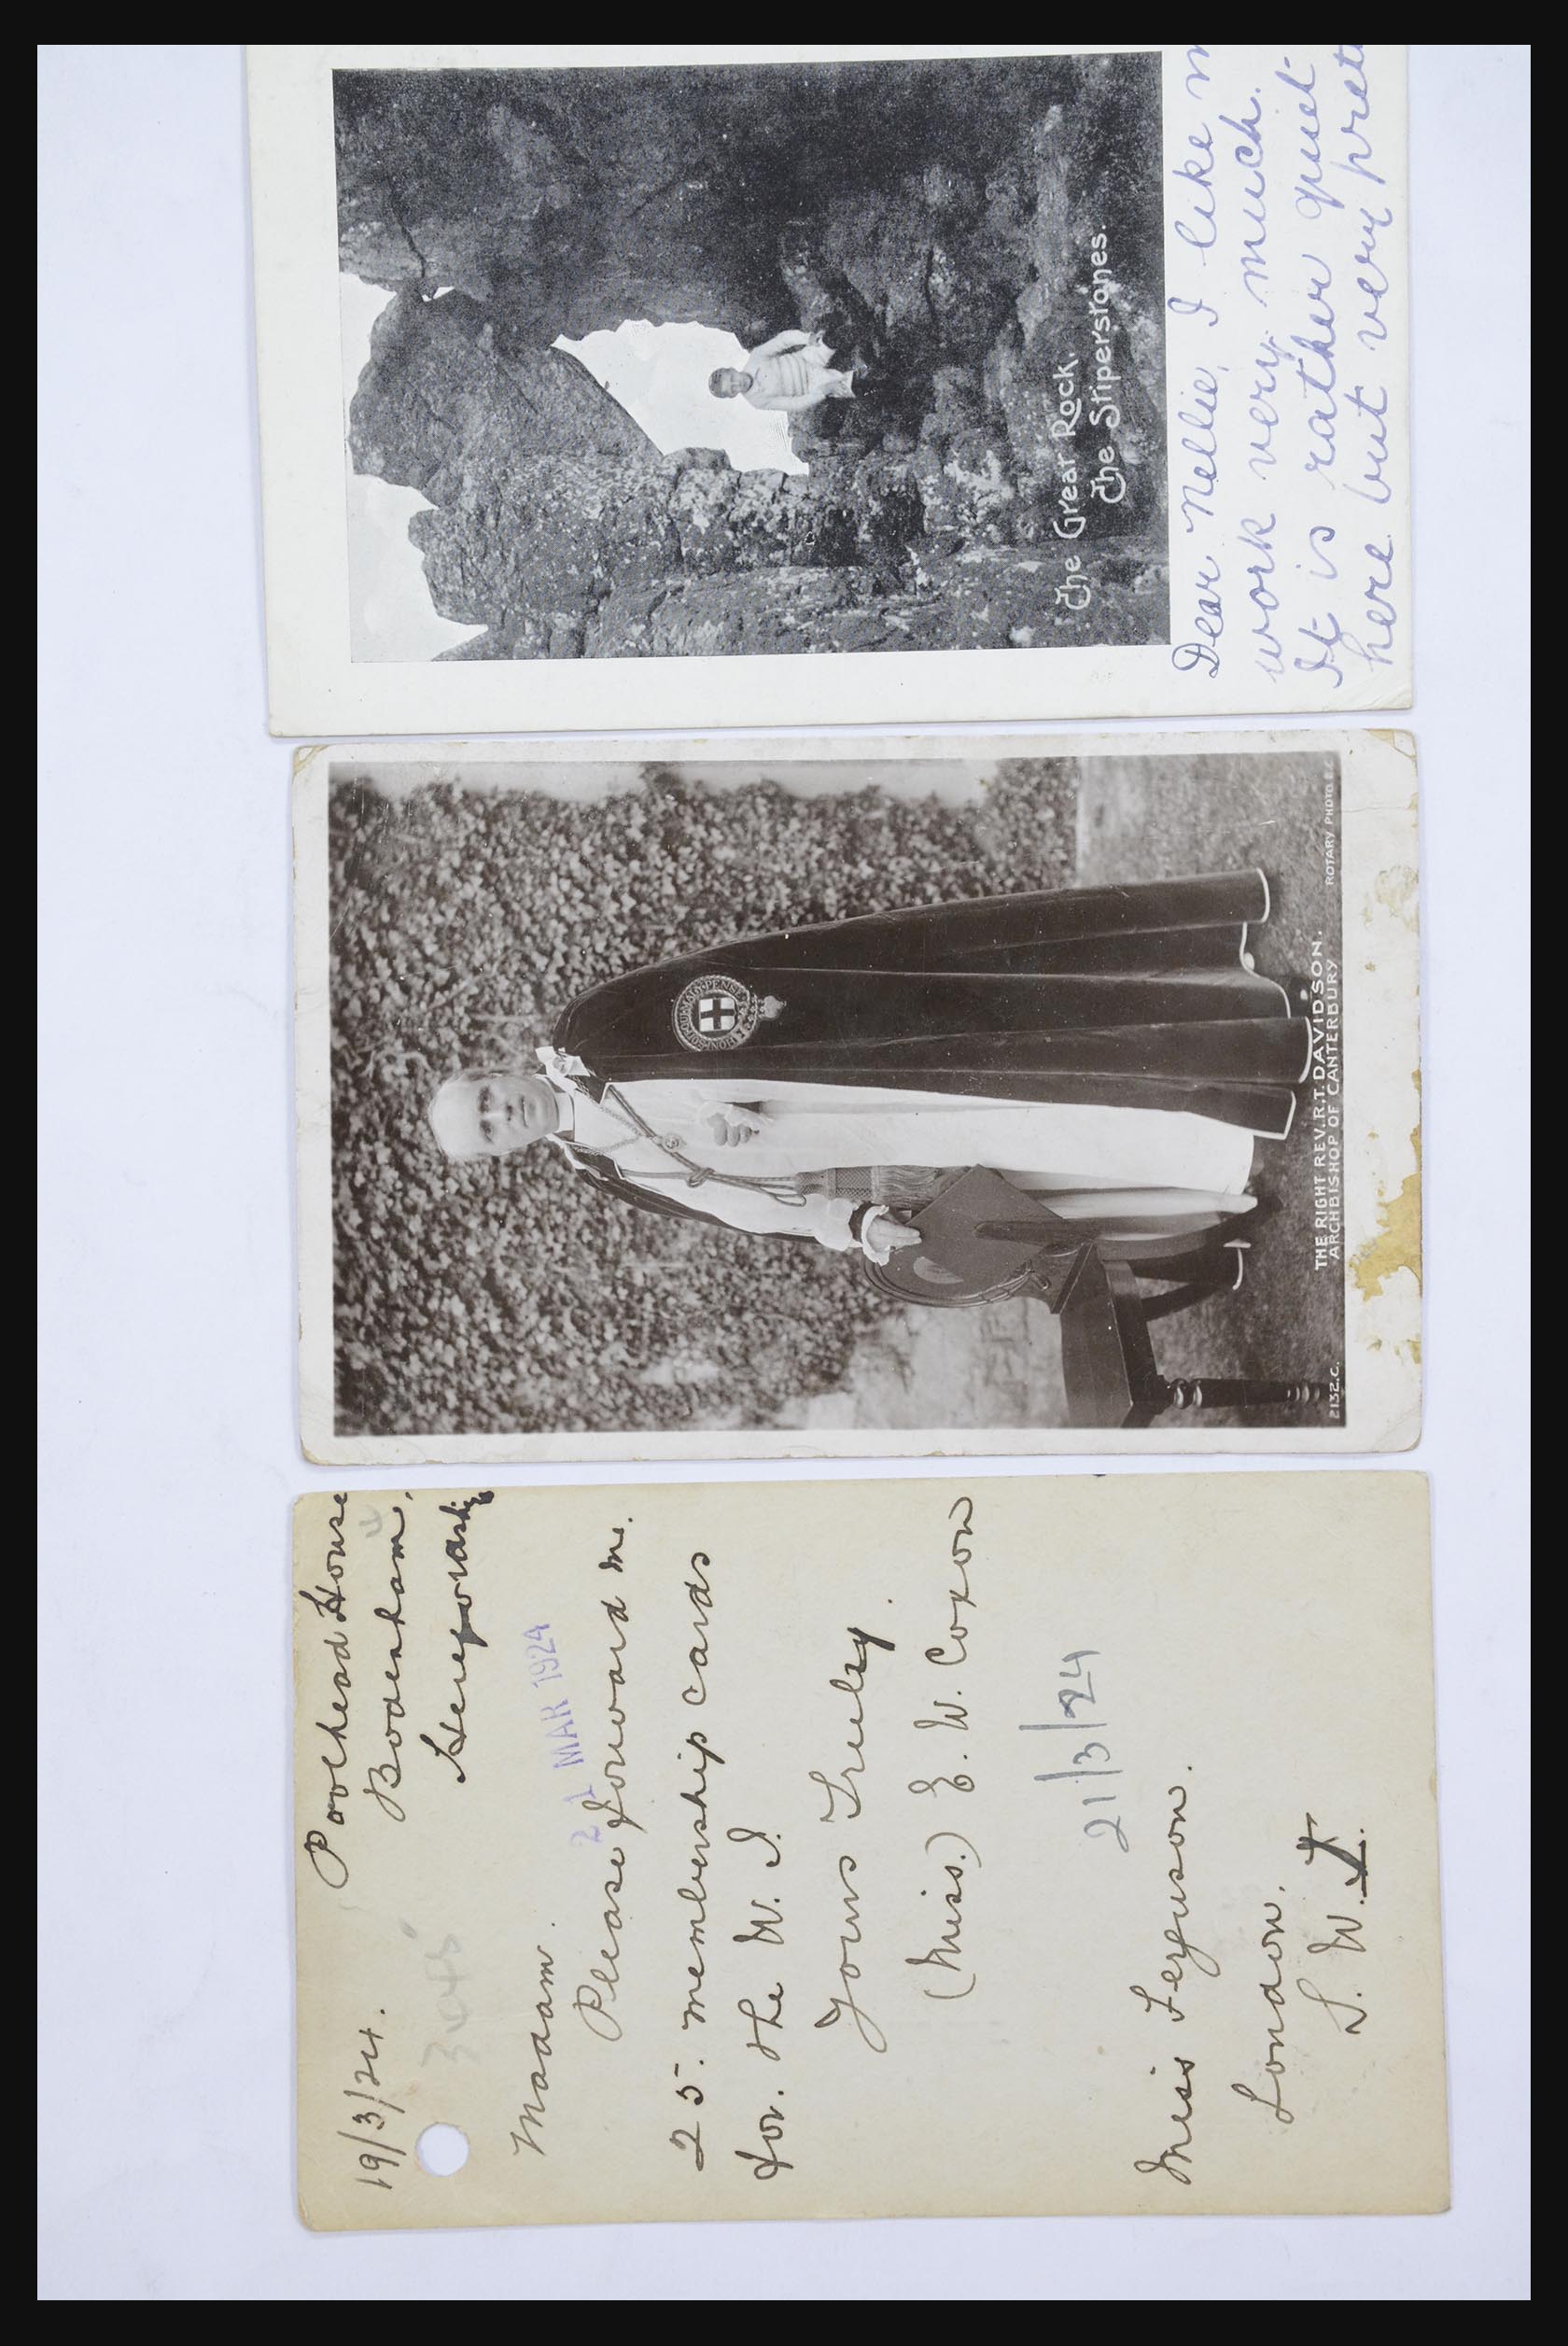 19/3/24.
Poolhead House
Bodenham,
Herefordsh
3045
Madam.
21 MAR 1924
Please forward me.
25. membership cards
for. the W. I.
Yours Truly.
(Miss.) E. W. Coxon
21/3/24
Miss Ferguson.
London.
S. W. I.
HONI SOIT QUI MAL Y PENSE
2132.C.
THE RIGHT REV. R.T. DAVIDSON.
ARCHBISHOP OF CANTERBURY
ROTARY PHOTO E.C.
The Great Rock.
The Stiperstones.
Dear Nellie, I like m
work very much.
It is rather quiet
here but very prett